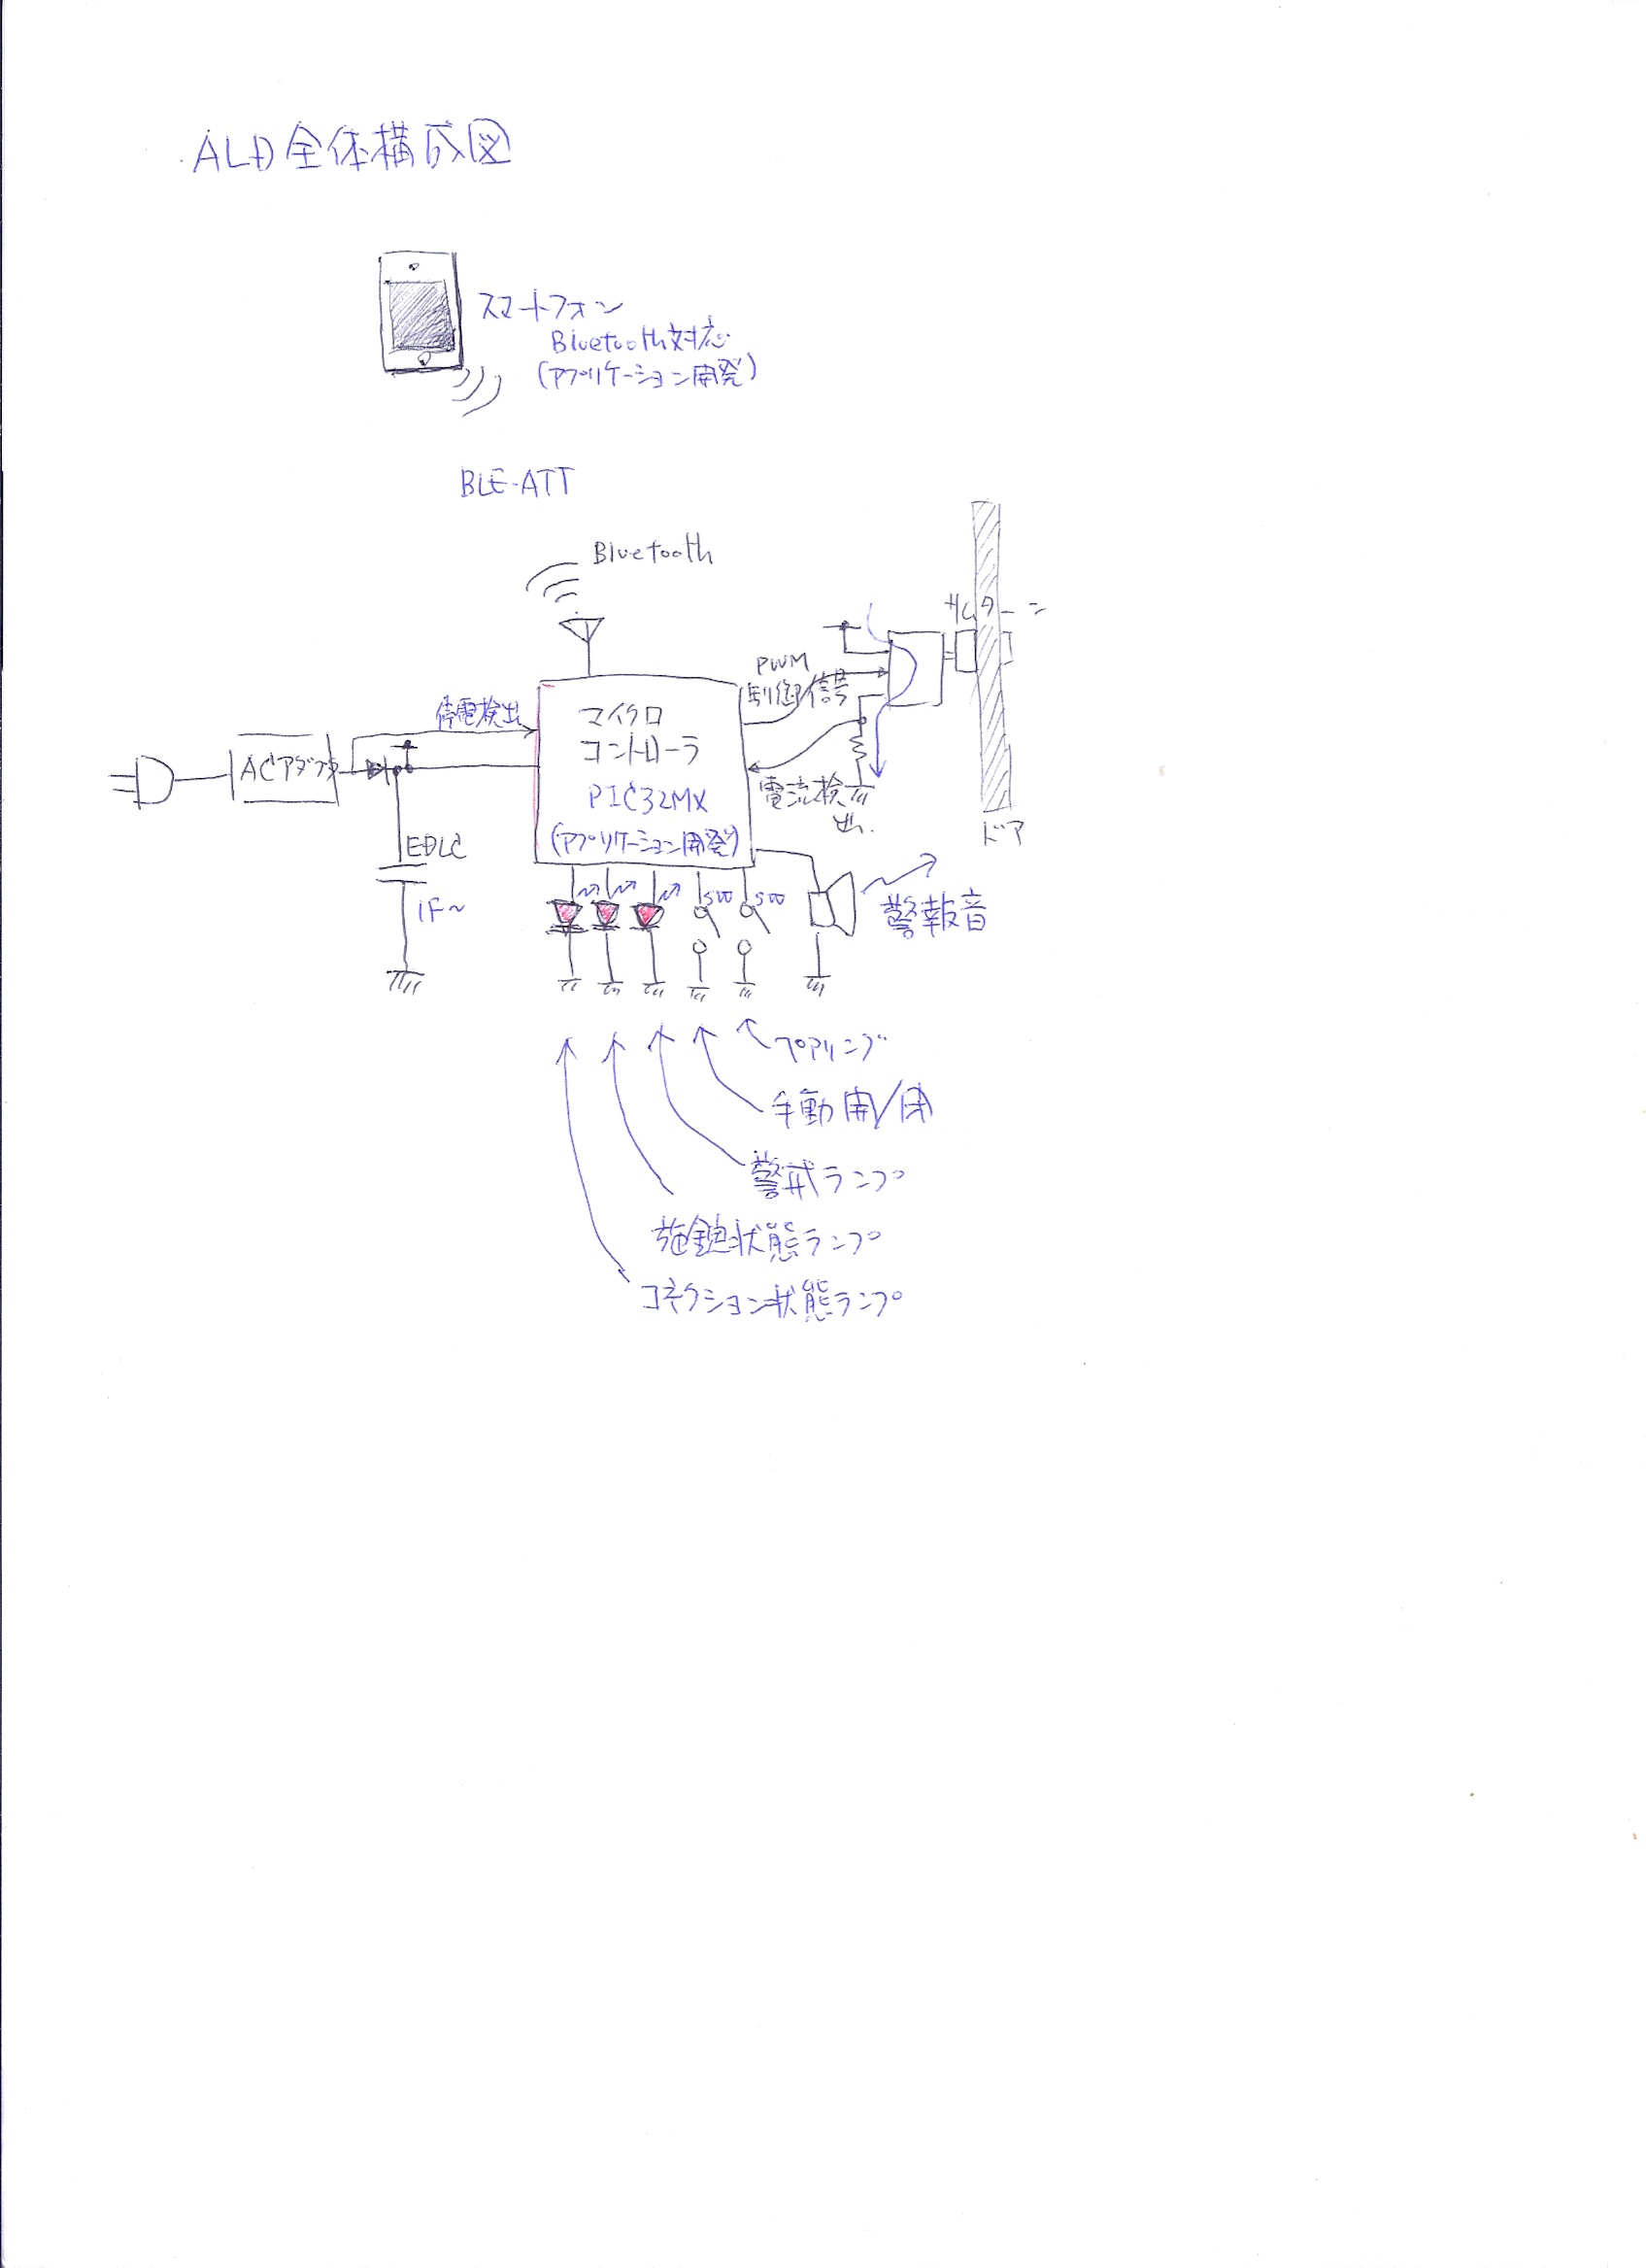 ALD全体構成図
スマートフォン
Bluetooth対応
(アプリケーション開発)
BLE-ATT
Bluetooth
サムターン
PWM
制御信号
停電検出
マイクロ
コントローラ
PIC32MX
(アプリケーション開発)
ACアダプタ
電流検
出.
ドア
EDLC
1F~
SW
SW
警報音
ペアリング
手動開/閉
警戒ランプ
施錠状態ランプ
コネクション状態ランプ